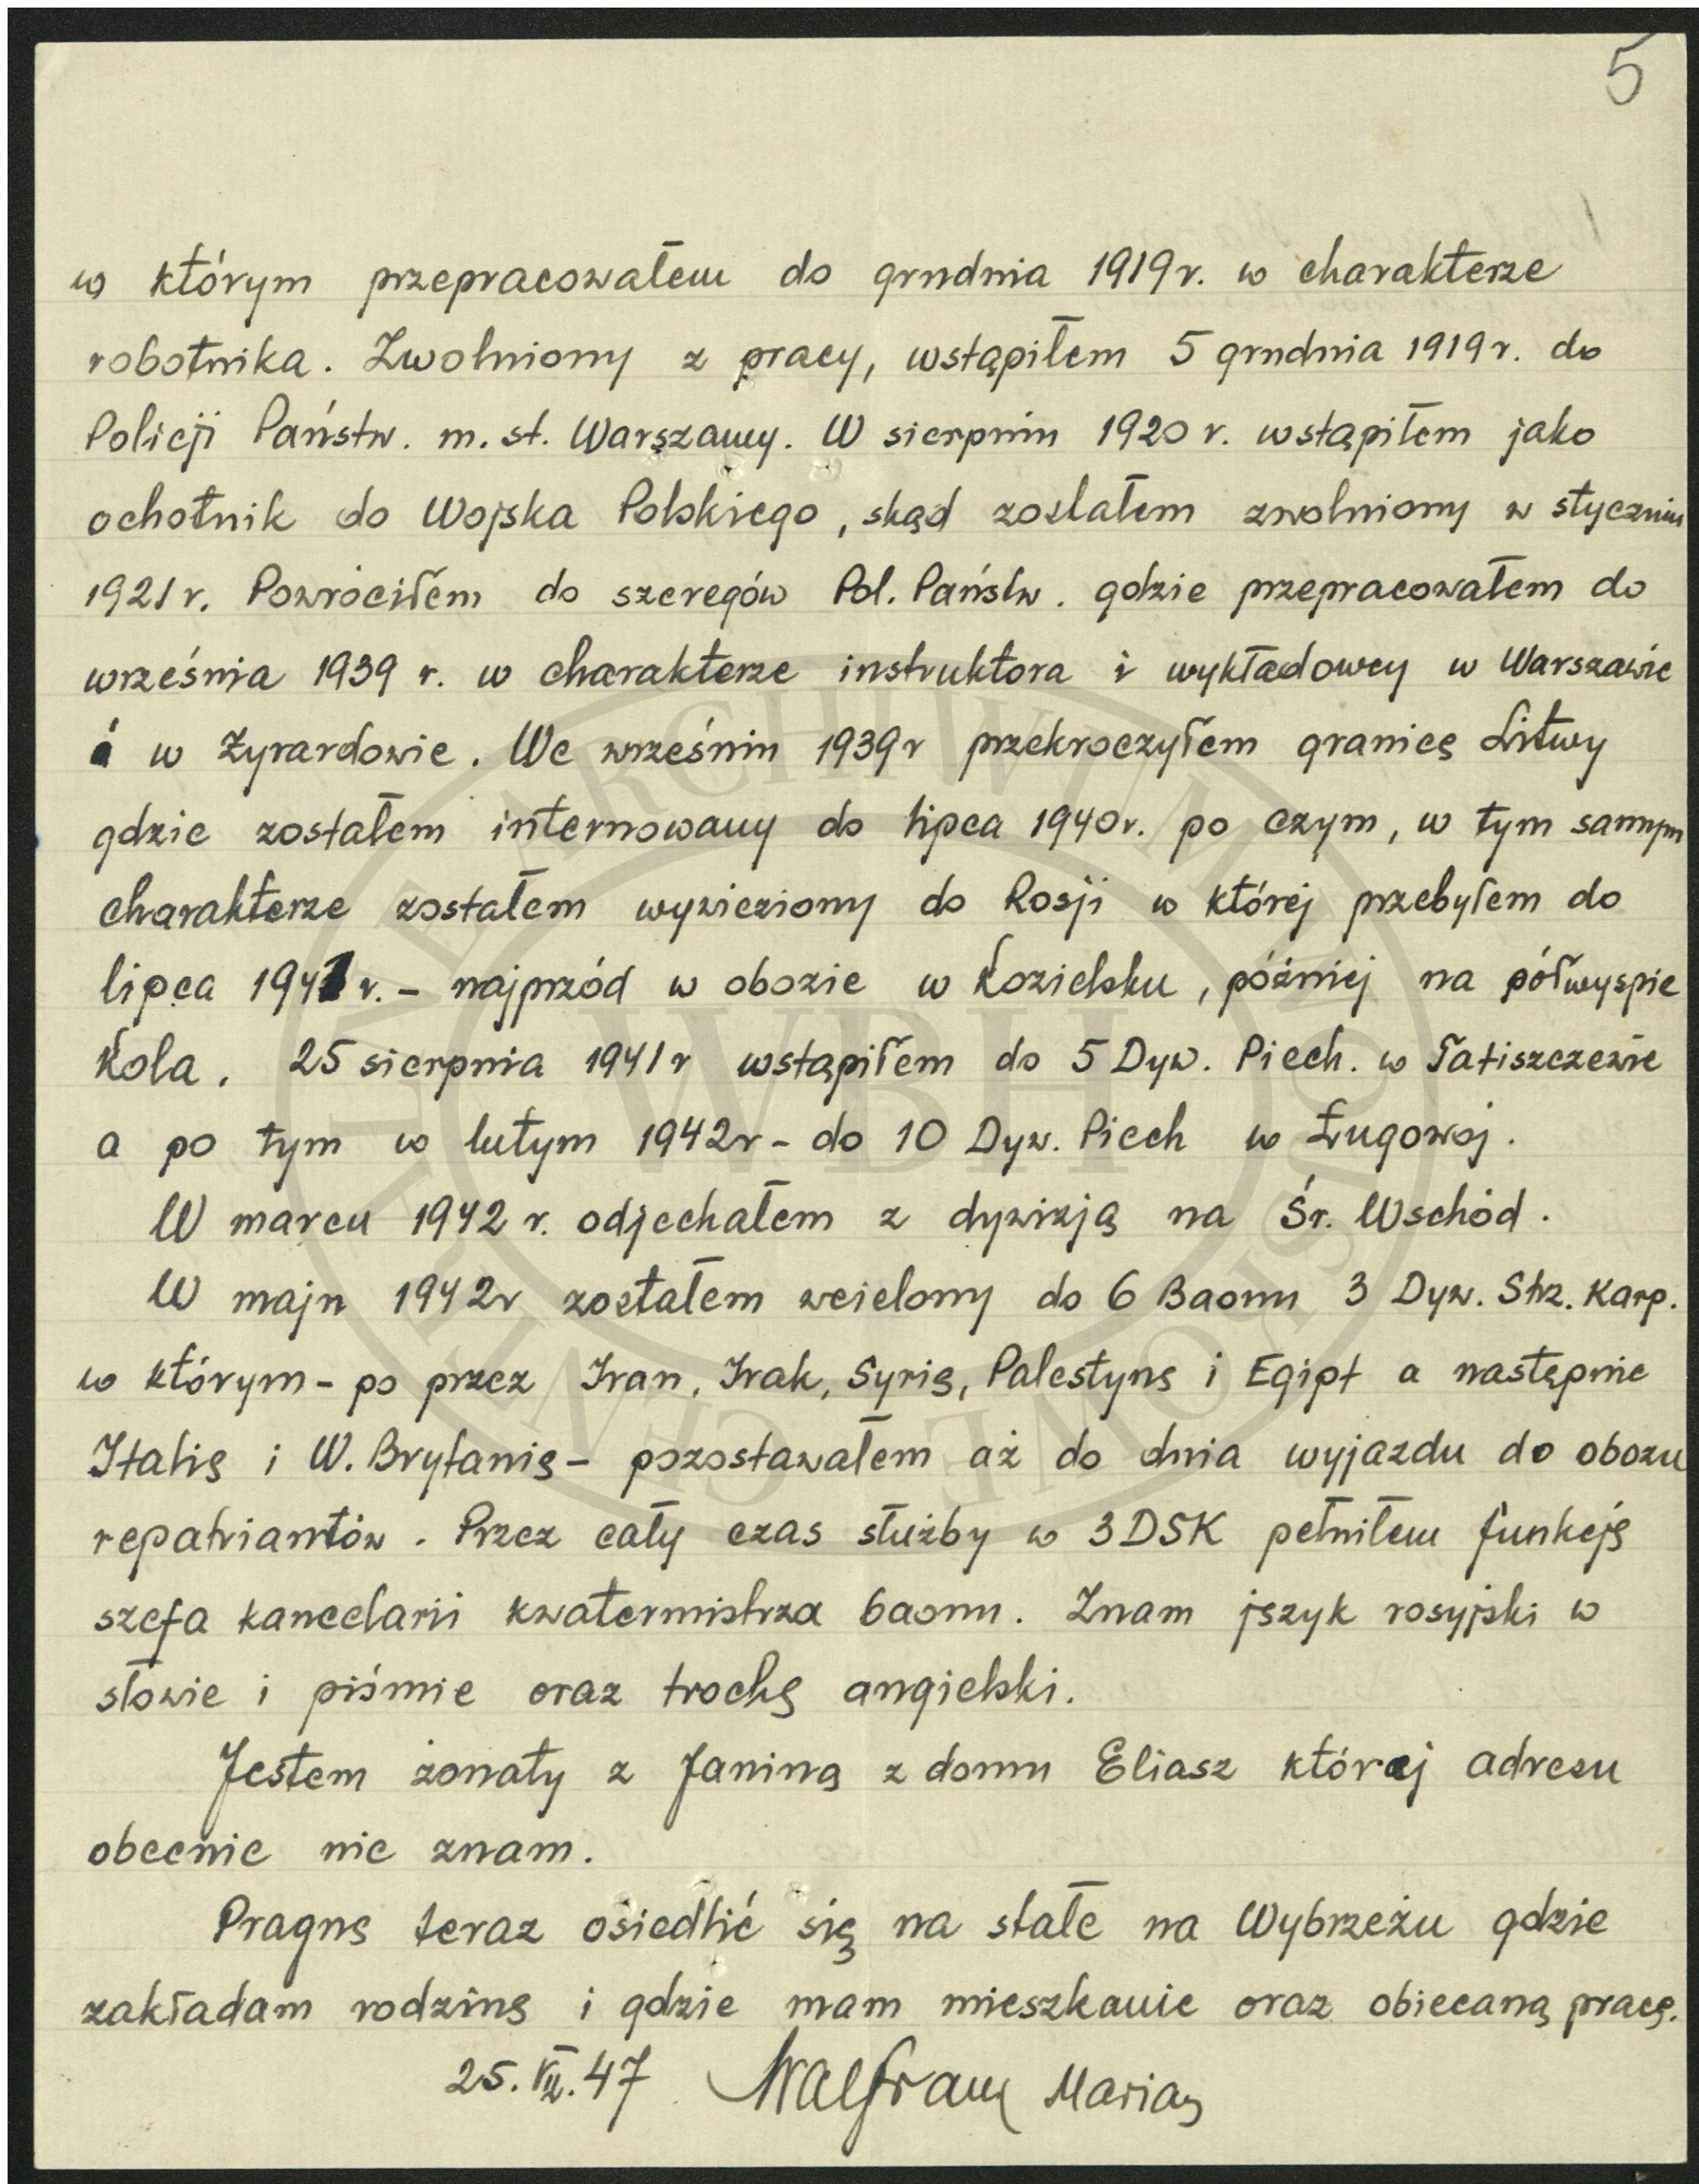 5
w którym przepracowałem do grudnia 1919 r. w charakterze
robotnika. Zwolniony z pracy, wstąpiłem 5 grudnia 1919 r. do
Policji Państw. m. st. Warszawy. W sierpniu 1920 r. wstąpiłem jako
ochotnik do Wojska Polskiego, skąd zostałem zwolniony w styczniu
1921 r. Powróciłem do szeregów Pol. Państw. gdzie przepracowałem do
września 1939 r. w charakterze instruktora i wykładowcy w Warszawie
i w Żyrardowie. We wrześniu 1939 r przekroczyłem granicę Litwy
gdzie zostałem internowany do lipca 1940 r. po czym, w tym samym
charakterze zostałem wywieziony do Rosji w której przebyłem do
lipca 1941 r. – najprzód w obozie w Kozielsku, później na półwyspie
Kola. 25 sierpnia 1941 r wstąpiłem do 5 Dyw. Piech. w Tatiszczewie
a po tym w lutym 1942 r – do 10 Dyw. Piech w Ługowoj.
W marcu 1942 r. odjechałem z dywizją na Śr. Wschód.
W maju 1942 r zostałem wcielony do 6 Baonu 3 Dyw. Strz. Karp.
w którym – po przez Iran, Irak, Syrię, Palestynę i Egipt a następnie
Italię i W. Brytanię – pozostawałem aż do dnia wyjazdu do obozu
repatriantów. Przez cały czas służby w 3 DSK pełniłem funkcję
szefa kancelarii kwatermistrza baonu. Znam język rosyjski w
słowie i piśmie oraz trochę angielski.
Jestem żonaty z Janiną z domu Eliasz której adresu
obecnie nie znam.
Pragnę teraz osiedlić się na stałe na Wybrzeżu gdzie
zakładam rodzinę i gdzie mam mieszkanie oraz obiecaną pracę.
25. VII. 47 Marian
CENTRALNE ARCHIWUM WOJSKOWE
WBH